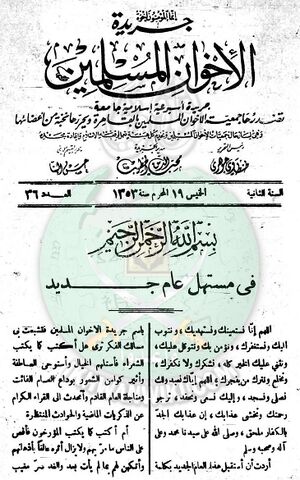 إنما المؤمنون إخوة
جريدة
الإخوان المسلمين
جريدة أسبوعية إسلامية جامعة
تصدرها جمعيت الإخوان المسلمين بالقاهرة ويحررها نخبة من أعضائها
السنة الثانية
الخميس ١٩ المحرم سنة ١٣٥٣
العدد ٣٦
بسم الله الرحمن الرحيم
فى مستهل عام جديد
اللهم إنا نستعينك ونستهديك، ونتوب
إليك ونستغفرك، ونؤمن بك ونتوكل عليك،
ونثنى عليك الخير كله، نشكرك ولا نكفرك،
ونخلع ونترك من يفجرك، اللهم إياك نعبد ولك
نصلى ونسجد، وإليك نسعى ونحفد، نرجو
رحمتك ونخشى عذابك، إن عذابك الجد
بالكفار ملحق، وصلى الله على سيدنا محمد وعلى
آله وصحبه وسلم
أردت أن أستقبل هذا العام الجديد بكلمة
باسم جريدة الاخوان المسلمين فتشعبت بى
مسالك الفكر ترى هل أكتب كما يكتب
الشعراء فأستلهم الخيال وأستوحى العاطفة
وأثير كوامن الشعور بوداع العام الفائت
ومناجاة العام القادم وأتحدث الى القراء الكرام
عن الذكريات الماضية والحوادث المنتظرة
أم أكتب كما يكتب المؤرخون فأقص
على الناس ما مر بهم ولا يزال أثره عالقا بأذهانهم
وأتكهن لهم بما لم يأت بعد والغد سر مغيب